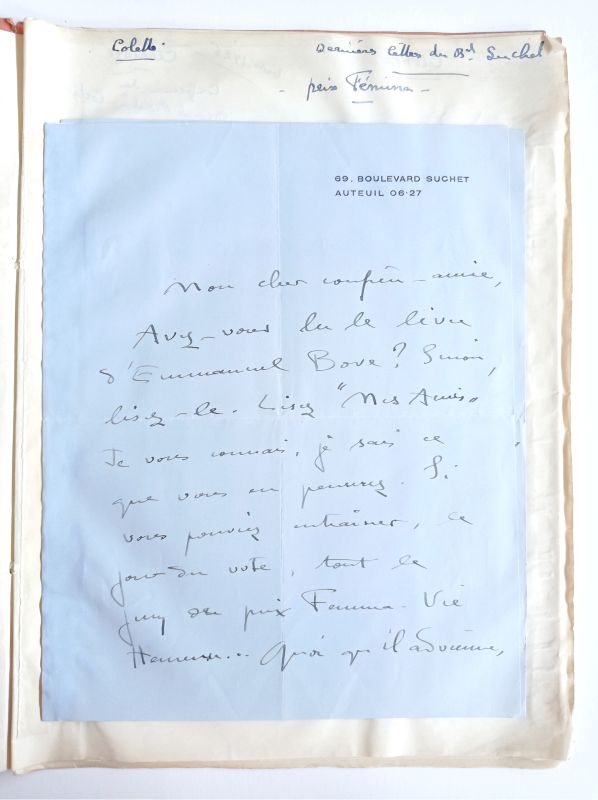 Colette.
Dernières lettres du Bd Suchet
- prix Fémina -
69. BOULEVARD SUCHET
AUTEUIL 06·27
Mon cher confrère - amie,
Avez-vous lu le livre
d'Emmanuel Bove? Sinon,
lisez-le. Lisez "Mes Amis"
Je vous connais, je sais ce
que vous en penserez. Si
vous pouviez entraîner, le
jour du vote, tout le
jury du prix Femina - Vie
Heureuse... Quoi qu'il advienne,